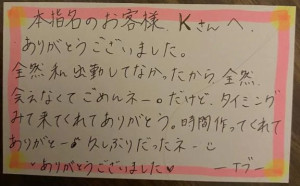 本指名のお客様 Kさんへ
ありがとうございました。
全然私出勤してなかったから全然
会えなくてごめんネー。だけど、タイミング
みて来てくれてありがとう。時間作ってくれて
ありがとー♪久しぶりだったネー
ありがとうございました♥